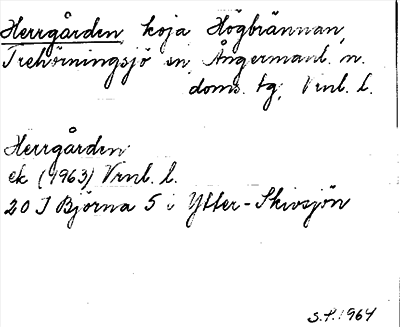 Herrgården, koja Högbrännan,
Trehörningsjö sn, Ångermanl. n.
doms. tg, Vrnl. l.
Herrgården
ek (1963) Vrnl. l.
20 J Björna 5 v Ytter-Skivsjön
S.F. 1964